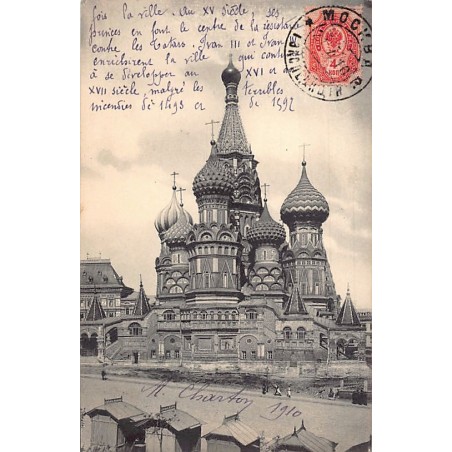 fois la ville. Au XV siècle, ses
princes en font le centre de la résistance
contre les Tatars. Ivan III et Ivan
enrichirent la ville qui conti
à se développer au XVI et a
XVII siècle, malgré les terribles
incendies de 1493 et de 1592
МОСКВА
M. Charton 1910